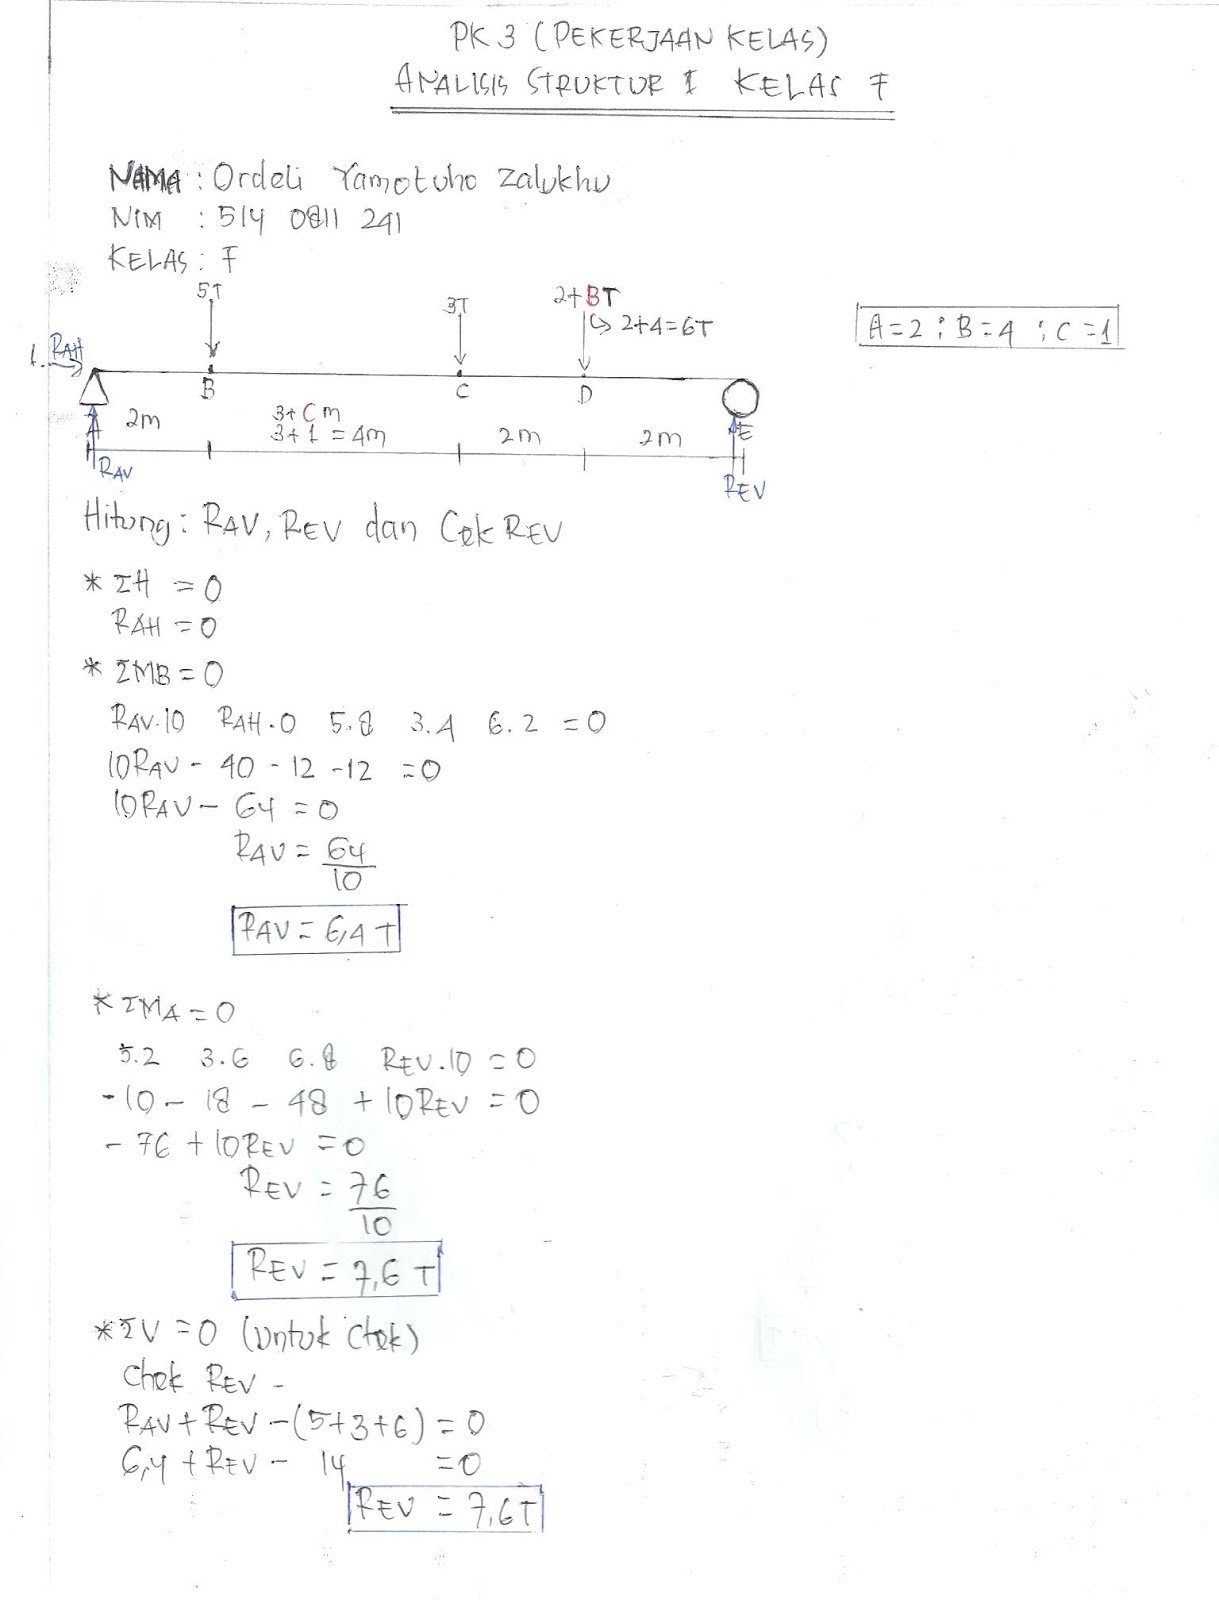 PK 3 (PEKERJAAN KELAS)
ANALISIS STRUKTUR I KELAS F
NAMA : Ordeli Yamotuho Zalukhu
NIM : 514 0811 241
KELAS : F
5T
3T
2+BT
↳ 2+4=6T
A=2 ; B=4 ; C=1
1. RAH
B
C
D
A
2m
3+Cm
3+1=4m
2m
2m
E
RAV
REV
Hitung : RAV, REV dan Cek REV
* ΣH = 0
RAH = 0
* ΣMB = 0
RAV.10 RAH.0 5.8 3.4 6.2 = 0
10RAV - 40 - 12 - 12 = 0
10RAV - 64 = 0
RAV = 64
10
RAV = 6,4 T
* ΣMA = 0
5.2 3.6 6.8 REV.10 = 0
-10 - 18 - 48 + 10REV = 0
- 76 + 10REV = 0
REV = 76
10
REV = 7,6 T
* ΣV = 0 (Untuk Chek)
Chek REV -
RAV + REV - (5+3+6) = 0
6,4 + REV - 14 = 0
REV = 7,6T